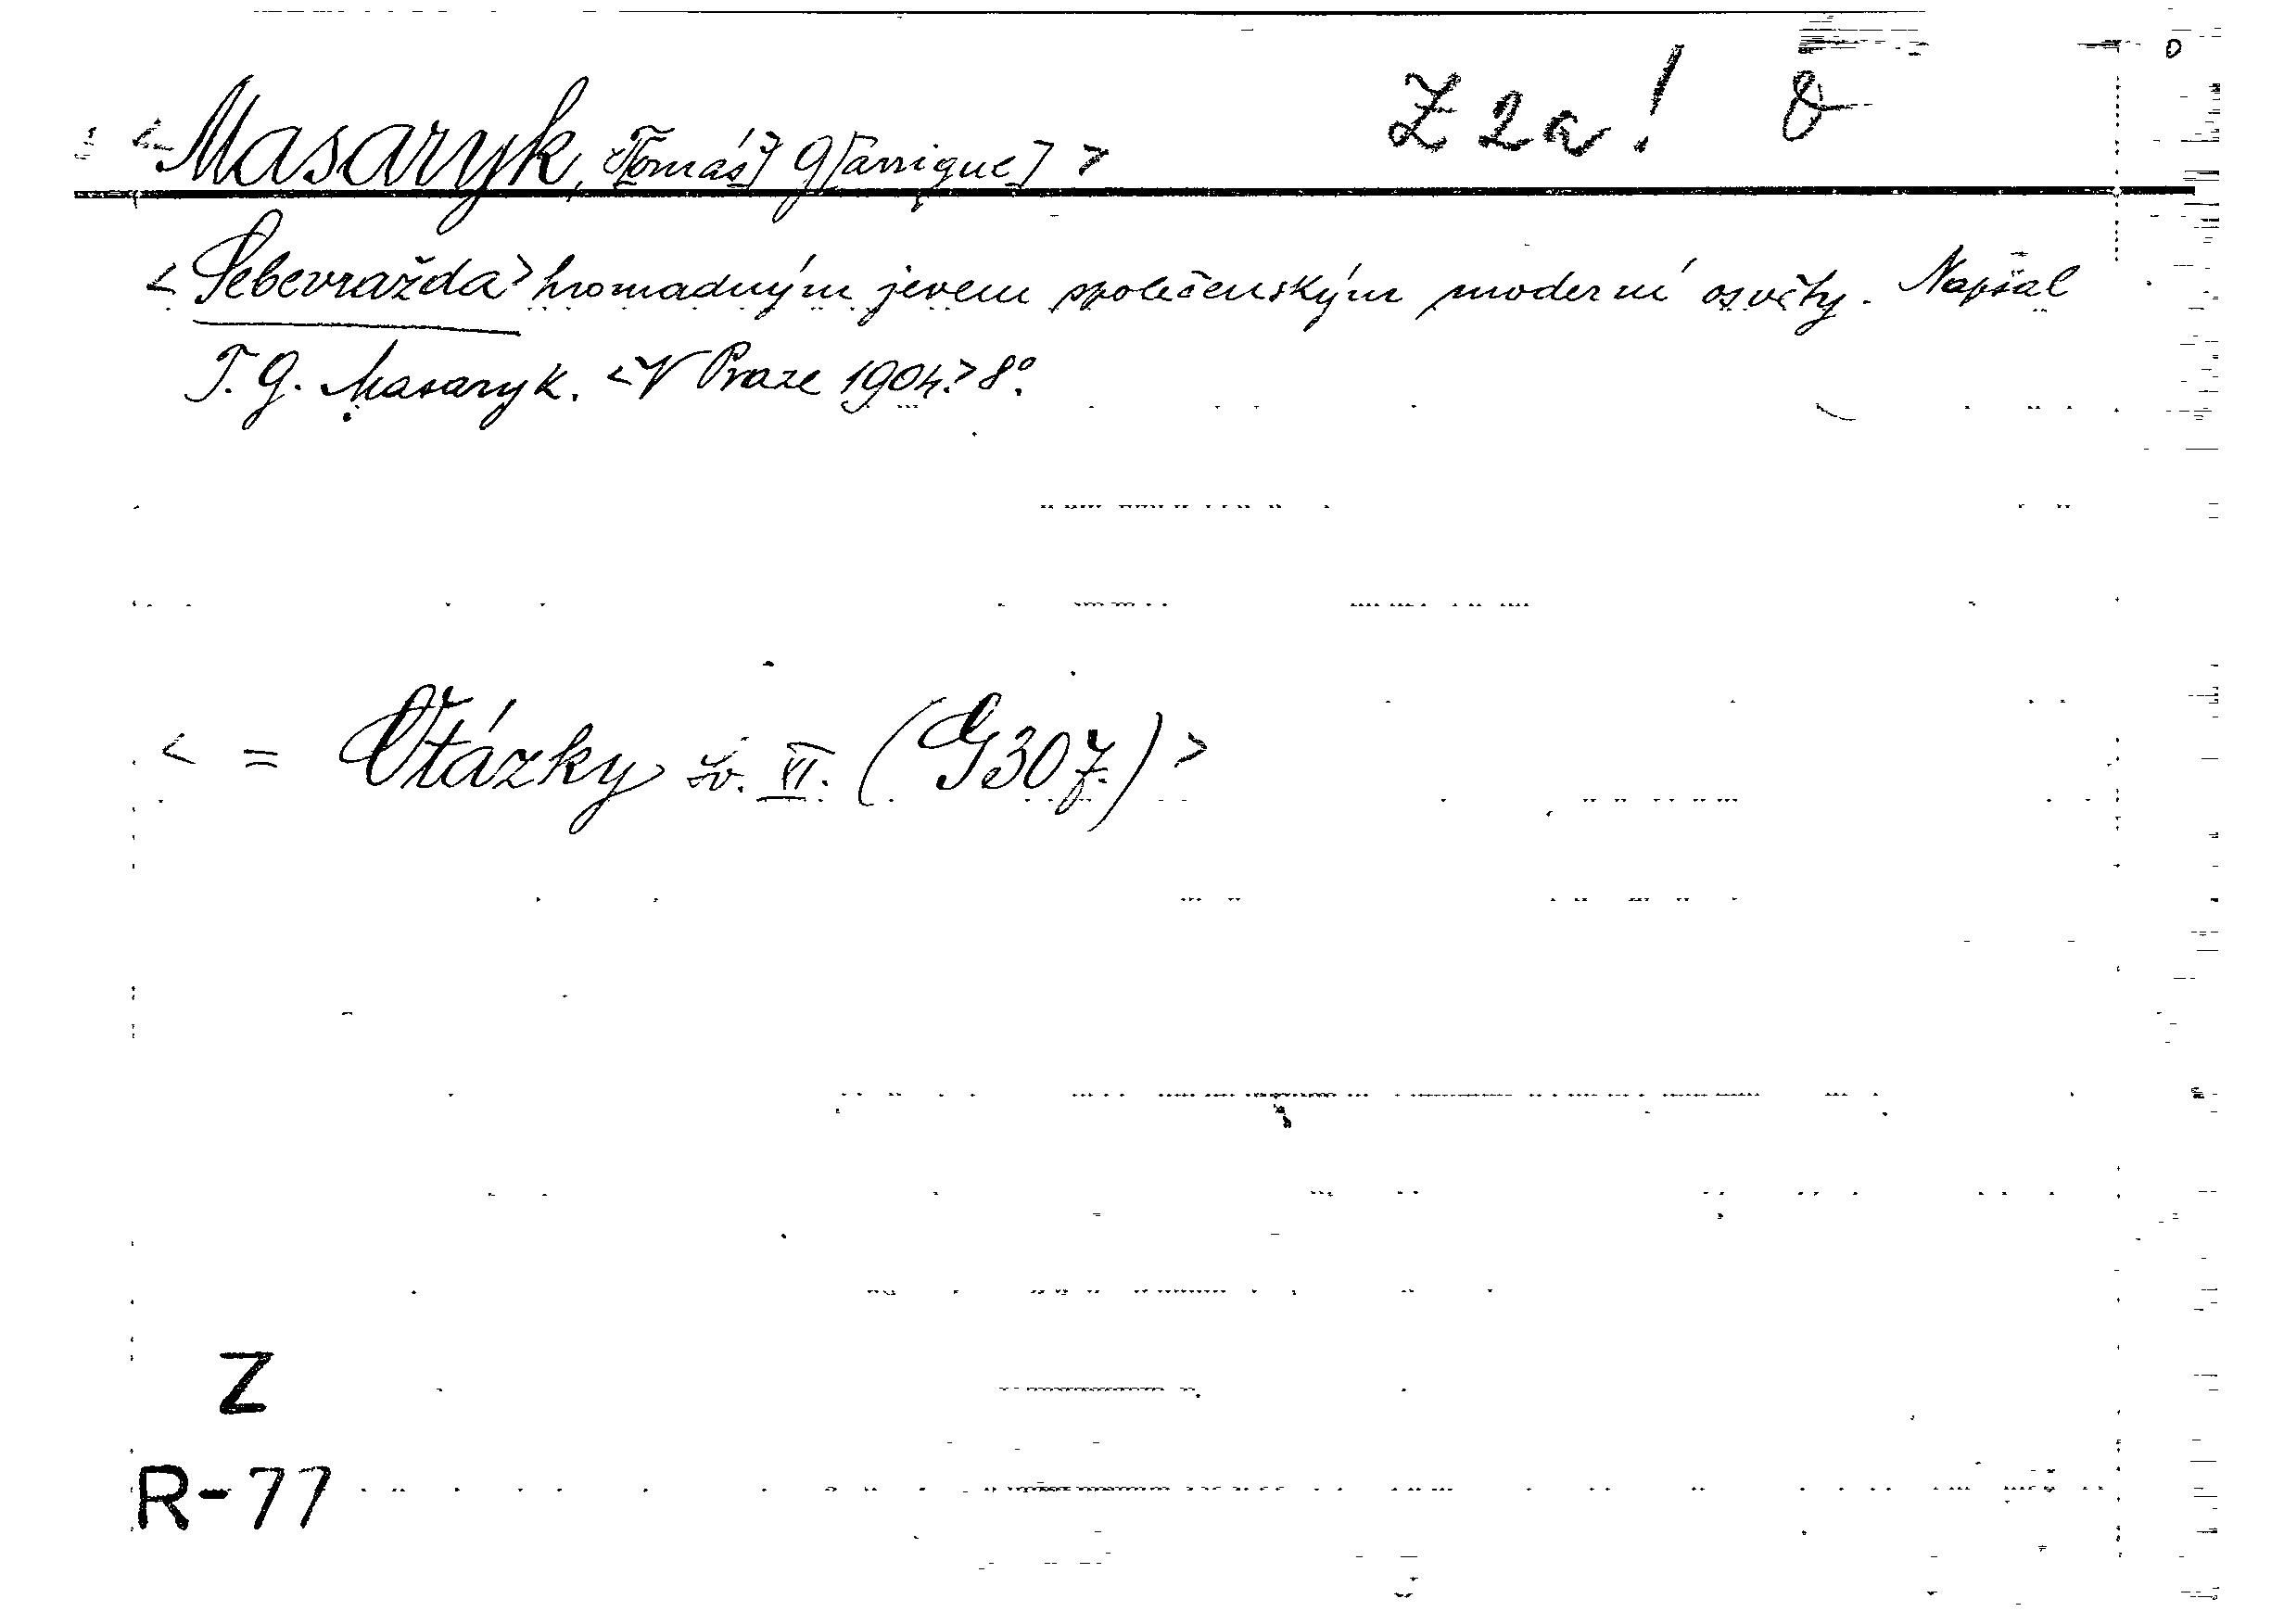 <Masaryk, T[omáš] G[arrigue]> Z 2a!
<Sebevražda> hromadným jevem společenským moderní osvěty. Napsal
T. G. Masaryk. <V Praze 1904.> 8°.
< = Otázky čís. VI. (G307.)>
Z
R-77